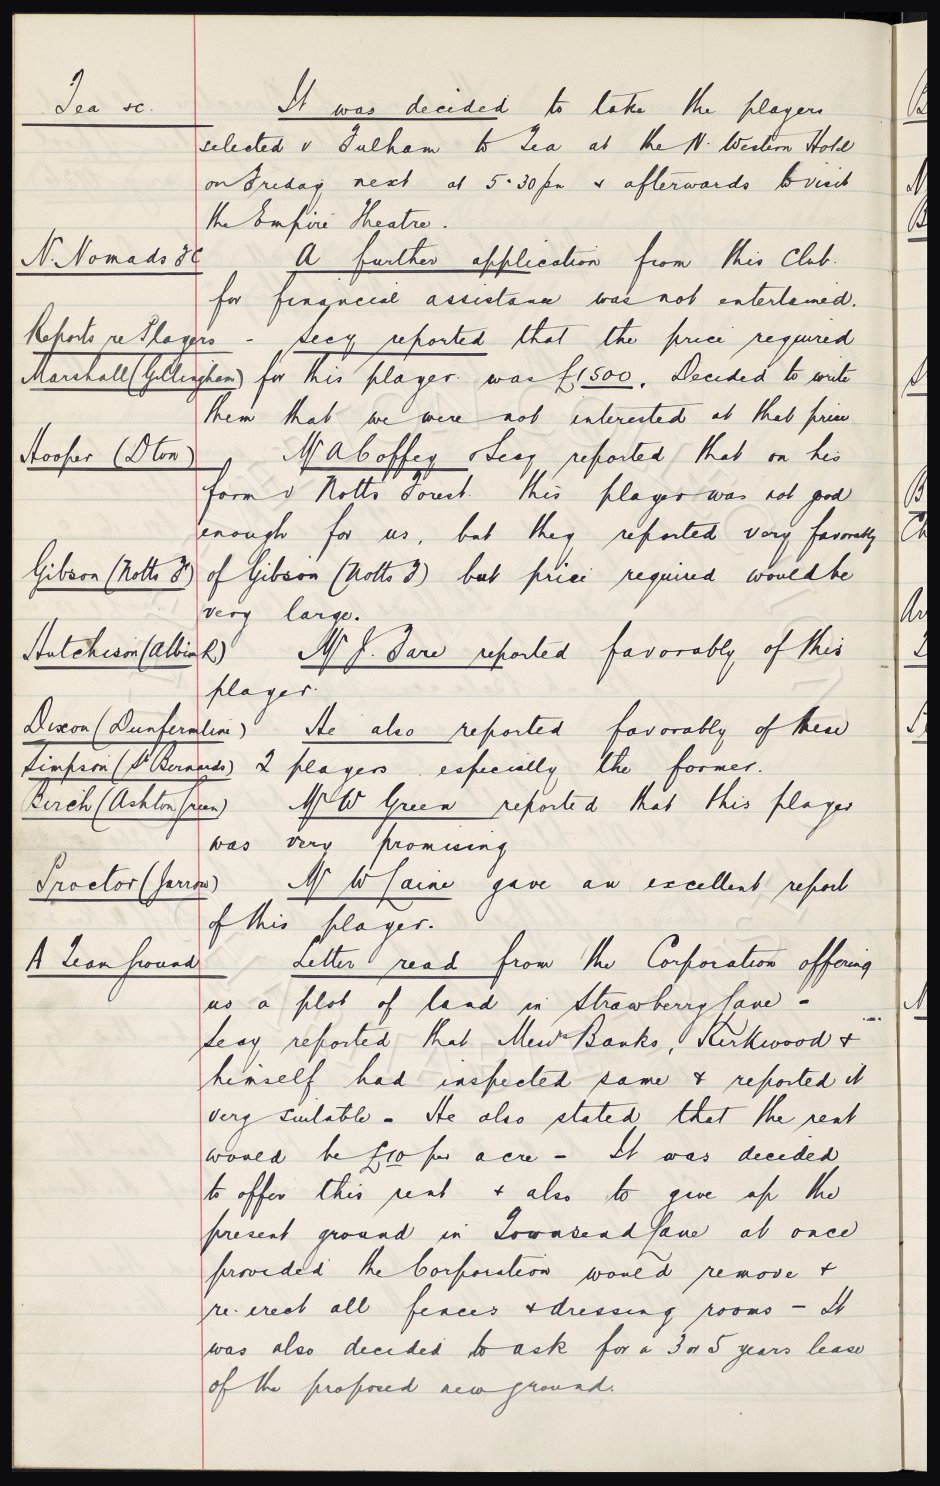 Tea &c. It was decided to take the players
selected v Fulham to Tea at the N. Western Hotel
on Friday next at 5.30 pm & afterwards to visit
the Empire Theatre.
N. Nomads FC A further application from this Club
for financial assistance was not entertained.
Reports re Players - Secy reported that the price required
Marshall (Gillingham) for this player was £1500. Decided to write
them that we were not interested at that price
Hooper (Dton) Mr A Coffey & Secy reported that on his
form v Notts Forest this player was not good
enough for us, but they reported very favorably
Gibson (Notts F) of Gibson (Notts F) but price required would be
very large.
Hutchison (Albion R.) Mr J. Fare reported favorably of this
player.
Dixon (Dunfermline) He also reported favorably of these
Simpson (St Bernards) 2 players especially the former.
Birch (Ashton Green) Mr W Green reported that this player
was very promising
Proctor (Jarrow) Mr W Caine gave an excellent report
of this player.
A Team Ground Letter read from the Corporation offering
us a plot of land in Strawberry Lane -
Secy reported that Messrs Banks, Kirkwood &
himself had inspected same & reported it
very suitable - He also stated that the rent
would be £10 per acre - It was decided
to offer this rent & also to give up the
present ground in Townsend Lane at once
provided the Corporation would remove &
re-erect all fences & dressing rooms - It
was also decided to ask for a 3 or 5 years lease
of the proposed new ground.